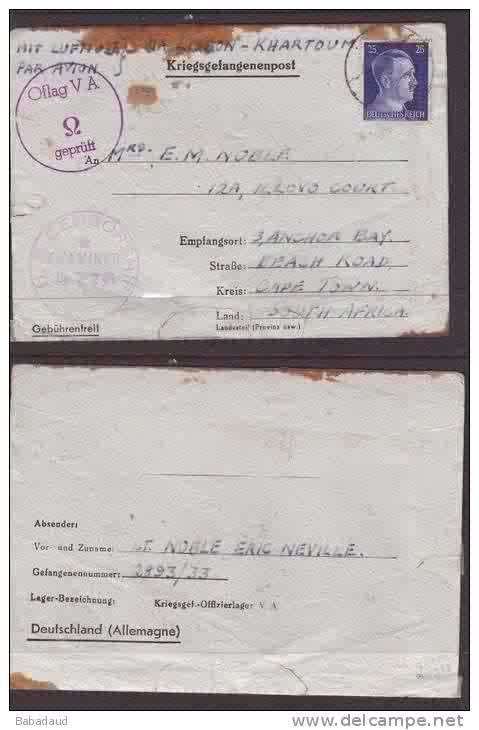 MIT LUFTPOST VIA LISBON - KHARTOUM.
PAR AVION
Kriegsgefangenenpost
25 25
DEUTSCHES REICH
Oflag V A
Ω
geprüft
An MRS. E. M. NOBLE
12A, ILLOVO COURT
CENSOR
Empfangsort: 3, ANCHOR BAY.
Straße: BEACH ROAD,
Kreis: CAPE TOWN.
Land: SOUTH AFRICA.
Landesteil (Provinz usw.)
Gebührenfrei!
Absender:
Vor- und Zuname: LT. NOBLE ERIC NEVILLE.
Gefangenennummer: 2893/33
Lager-Bezeichnung: Kriegsgef.-Offizierlager V A
Deutschland (Allemagne)
Babadaud
www.delcampe.net